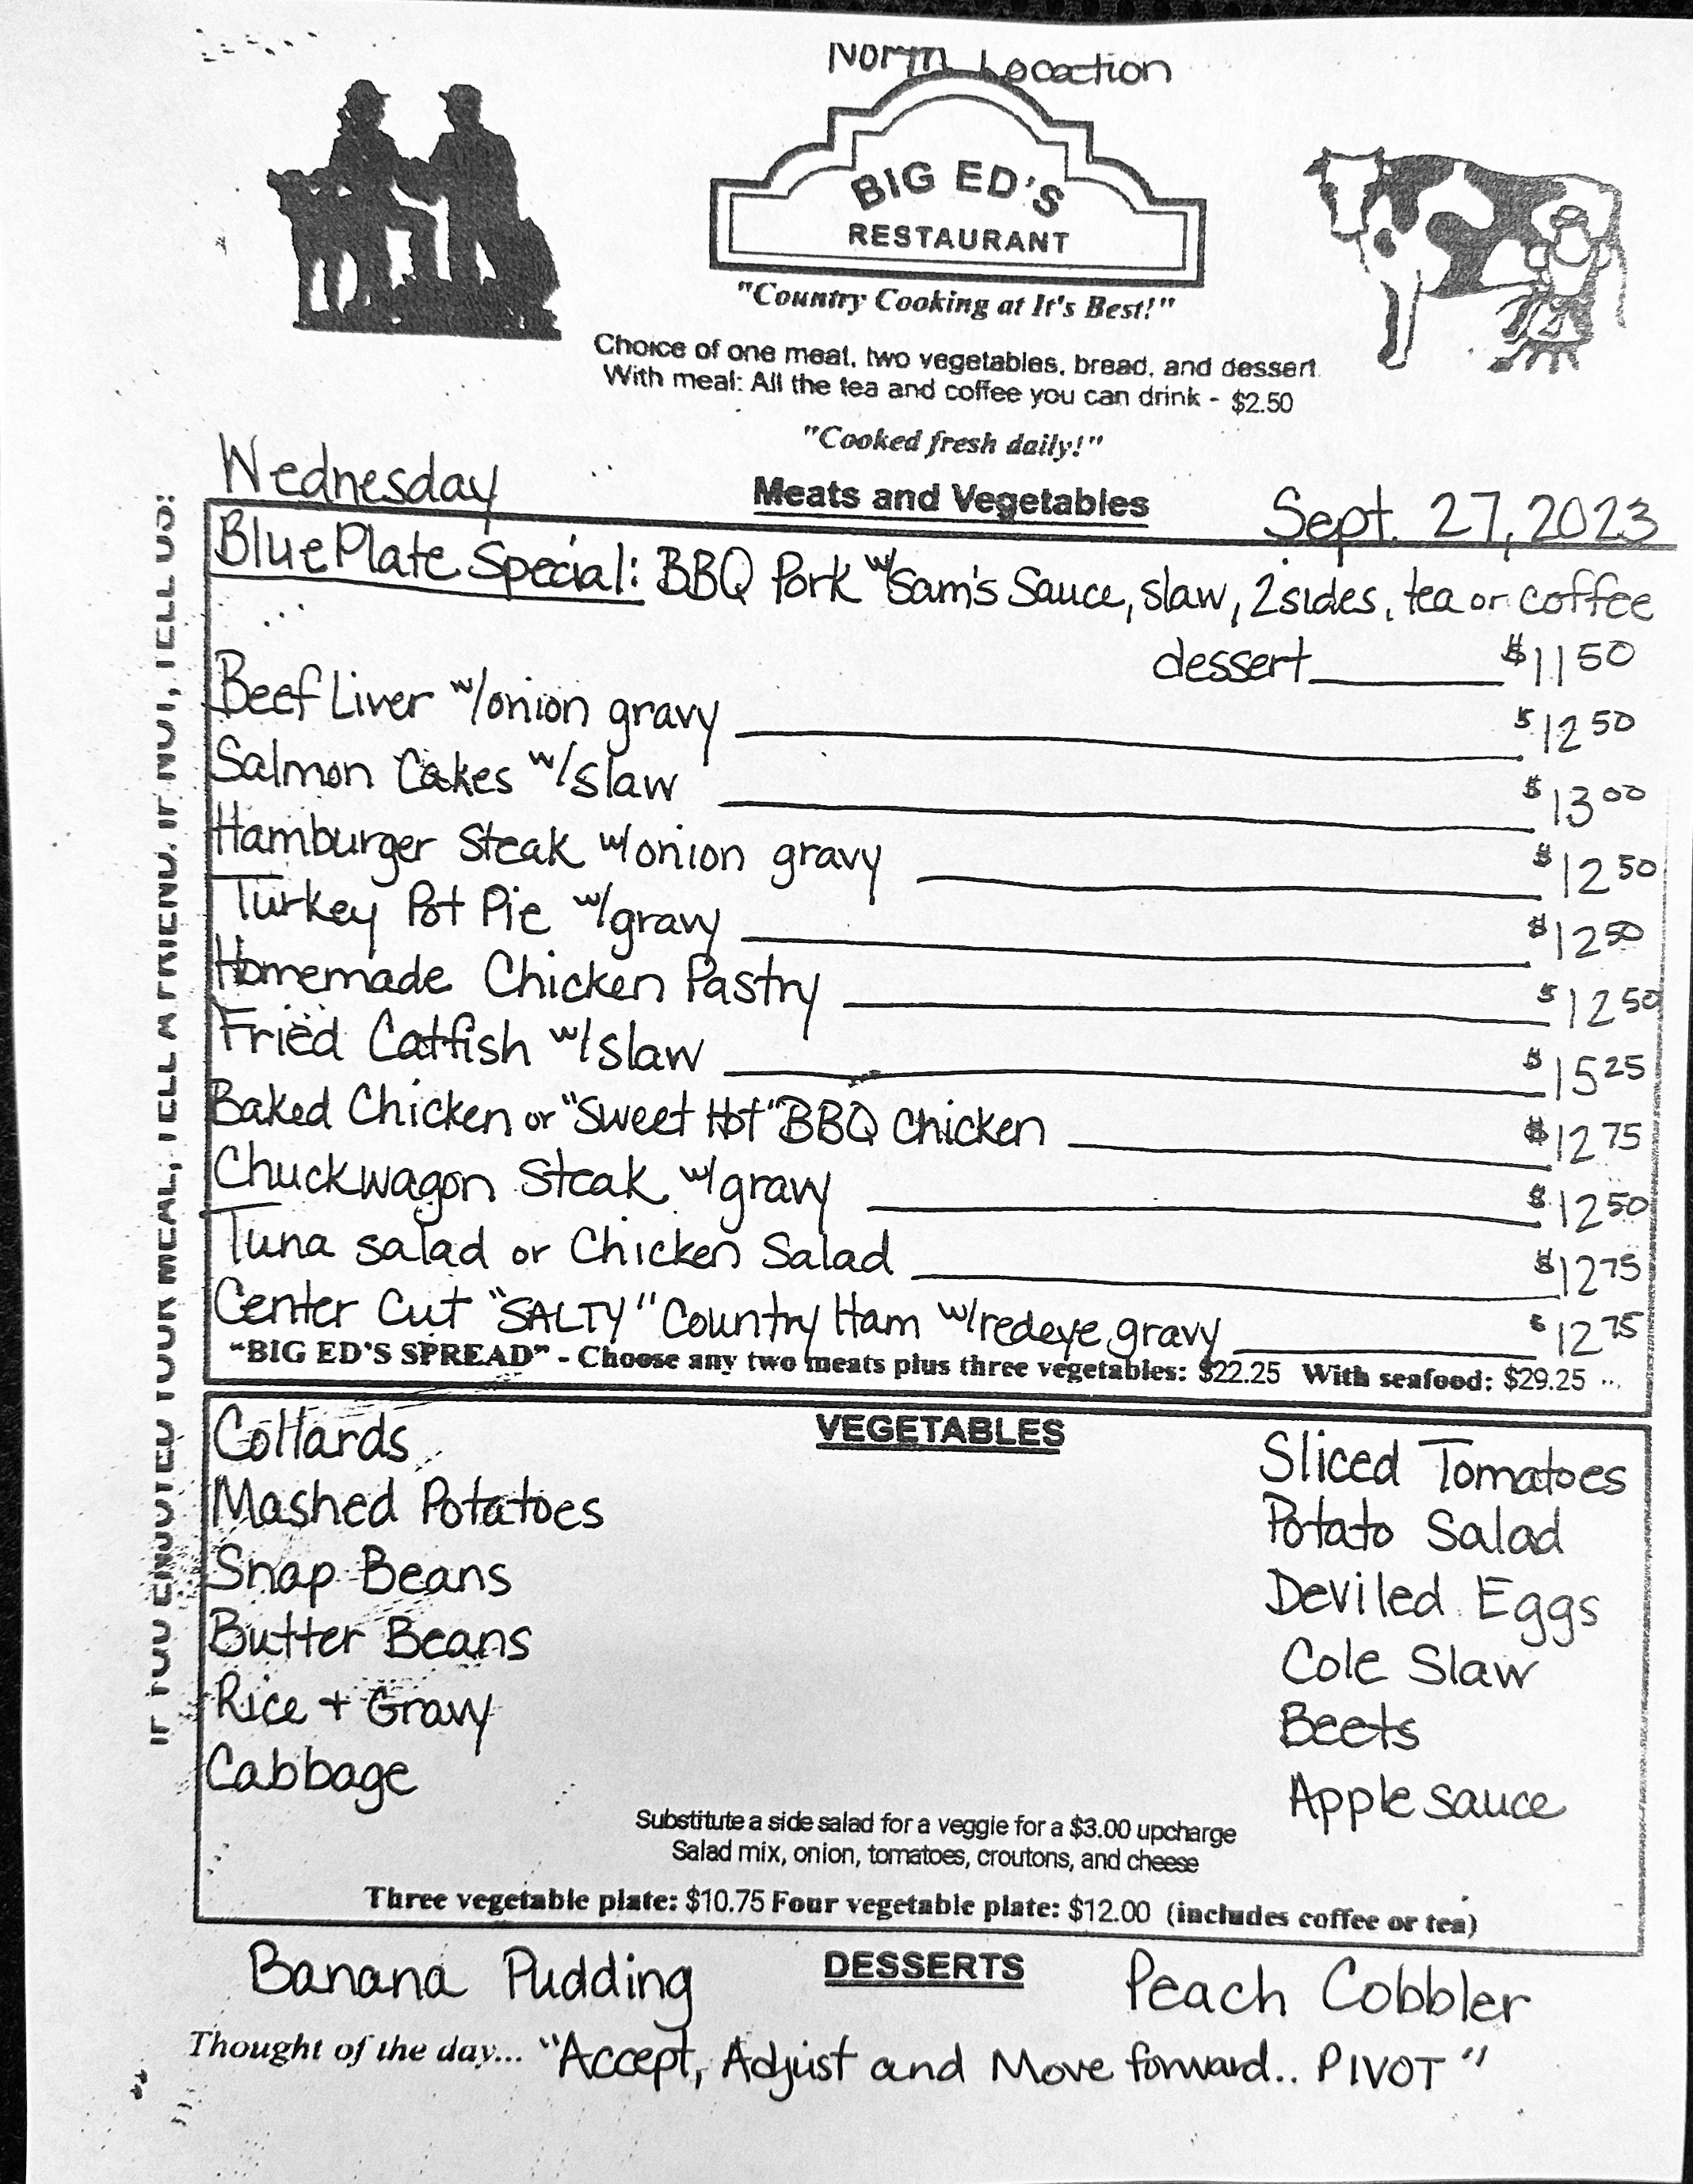 North Location
BIG ED'S
RESTAURANT
"Country Cooking at It's Best!"
Choice of one meat, two vegetables, bread, and dessert
With meal: All the tea and coffee you can drink - $2.50
"Cooked fresh daily!"
Wednesday Meats and Vegetables Sept. 27, 2023
Blue Plate Special: BBQ Pork w/ Sam's Sauce, slaw, 2 sides, tea or coffee
dessert $11 50
Beef Liver w/onion gravy $12 50
Salmon Cakes w/slaw $13 00
Hamburger Steak w/onion gravy $12 50
Turkey Pot Pie w/gravy $12 50
Homemade Chicken Pastry $12 50
Fried Catfish w/slaw $15 25
Baked Chicken or "Sweet Hot" BBQ Chicken $12 75
Chuckwagon Steak w/gravy $12 50
Tuna salad or Chicken Salad $12 75
Center Cut "SALTY" Country Ham w/redeye gravy $12 75
"BIG ED'S SPREAD" - Choose any two meats plus three vegetables: $22.25 With seafood: $29.25
VEGETABLES
Collards
Mashed Potatoes
Snap Beans
Butter Beans
Rice + Gravy
Cabbage
Sliced Tomatoes
Potato Salad
Deviled Eggs
Cole Slaw
Beets
Apple sauce
Substitute a side salad for a veggie for a $3.00 upcharge
Salad mix, onion, tomatoes, croutons, and cheese
Three vegetable plate: $10.75 Four vegetable plate: $12.00 (includes coffee or tea)
DESSERTS
Banana Pudding Peach Cobbler
Thought of the day... "Accept, Adjust and Move forward.. PIVOT"
IF YOU ENJOYED YOUR MEAL, TELL A FRIEND. IF NOT, TELL US!